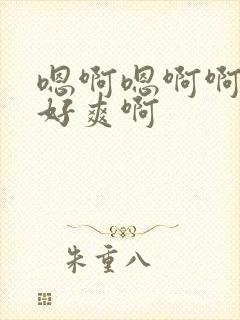 嗯啊嗯啊啊
好爽啊
朱重八